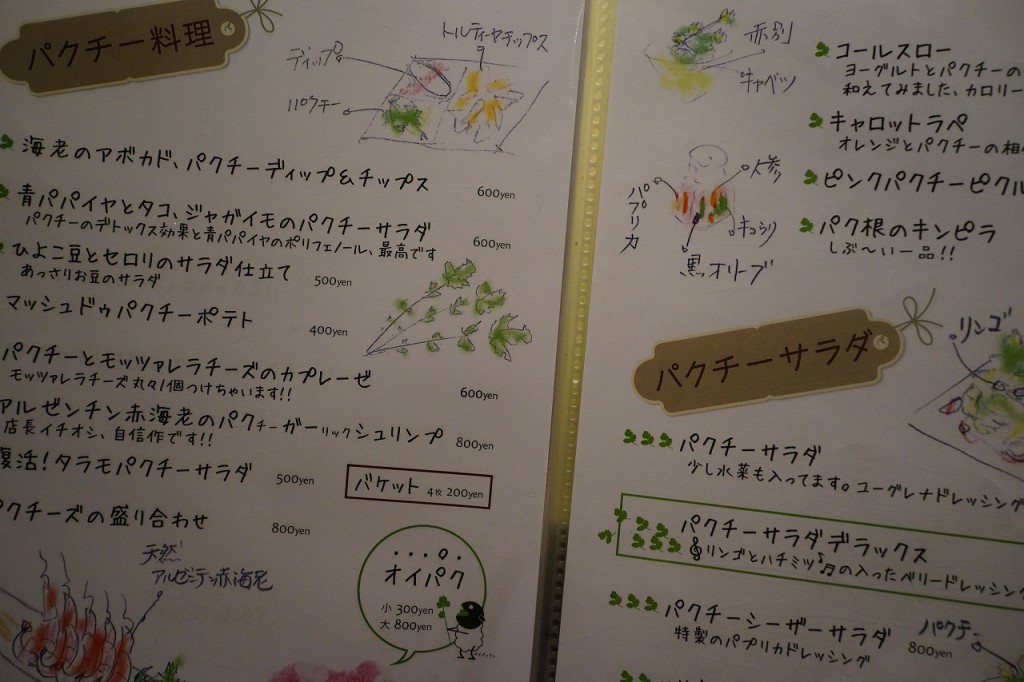 パクチー料理
ディップ
トルティーヤチップス
パクチー
海老のアボカド、パクチーディップ&チップス 600yen
青パパイヤとタコ、ジャガイモのパクチーサラダ 600yen
パクチーのデトックス効果と青パパイヤのポリフェノール、最高です
ひよこ豆とセロリのサラダ仕立て 500yen
あっさりお豆のサラダ
マッシュドゥパクチーポテト 400yen
パクチーとモッツァレラチーズのカプレーゼ 600yen
モッツァレラチーズ丸々1個つけちゃいます!!
アルゼンチン赤海老のパクチーガーリックシュリンプ 800yen
店長イチオシ、自信作です!!
復活!タラモパクチーサラダ 500yen
バケット 4枚 200yen
パクチーズの盛り合わせ 800yen
天然
アルゼンチン赤海老
・・・。・
オイパク
小 300yen
大 800yen
赤
キャベツ
コールスロー
ヨーグルトとパクチーの
和えてみました、カロリー
キャロットラペ
オレンジとパクチーの相
人参
パプリカ
キュウリ
黒オリーブ
ピンクパクチーピクル
パク根のキンピラ
しぶ〜い一品!!
パクチーサラダ
リンゴ
パクチーサラダ
少し水菜も入ってます。ユーグレナドレッシング
パクチーサラダデラックス
リンゴとハチミツの入ったベリードレッシング
パクチーシーザーサラダ 800yen
特製のパプリカドレッシング
パクチー